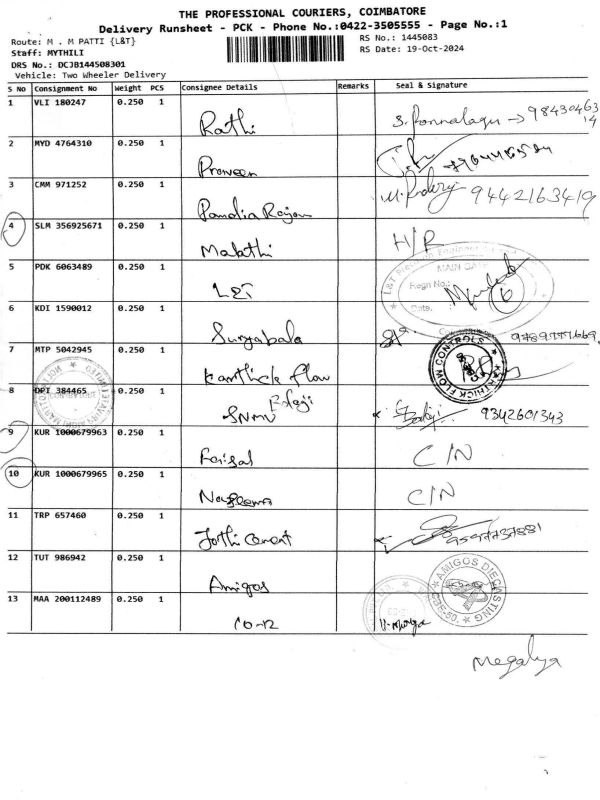 THE PROFESSIONAL COURIERS, COIMBATORE
Delivery Runsheet - PCK - Phone No.:0422-3505555 - Page No.:1
Route: M . M PATTI {L&T}
RS No.: 1445083
Staff: MYTHILI
RS Date: 19-Oct-2024
DRS No.: DCJB144508301
Vehicle: Two Wheeler Delivery
S No Consignment No Weight PCS Consignee Details Remarks Seal & Signature
1 VLI 180247 0.250 1 Rathi
2 MYD 4764310 0.250 1 Praveen
3 CMM 971252 0.250 1 Pandia Rajan 9442163419
4 SLM 356925671 0.250 1 Malathi H/R
5 PDK 6063489 0.250 1 L&T
MAIN GATE
Regn No.: 6
Date.
6 KDI 1590012 0.250 1 Suryabala
7 MTP 5042945 0.250 1 Karthick Flow
KARTHICK FLOW CONTROLS
8 DPI 384465 0.250 1 SNMV 9342601343
9 KUR 1000679963 0.250 1 Faisal C/N
10 KUR 1000679965 0.250 1 C/N
11 TRP 657460 0.250 1 Jothi Cement
12 TUT 986942 0.250 1 Amigos
AMIGOS DIECASTING
CBE-50.
13 MAA 200112489 0.250 1
Megalya